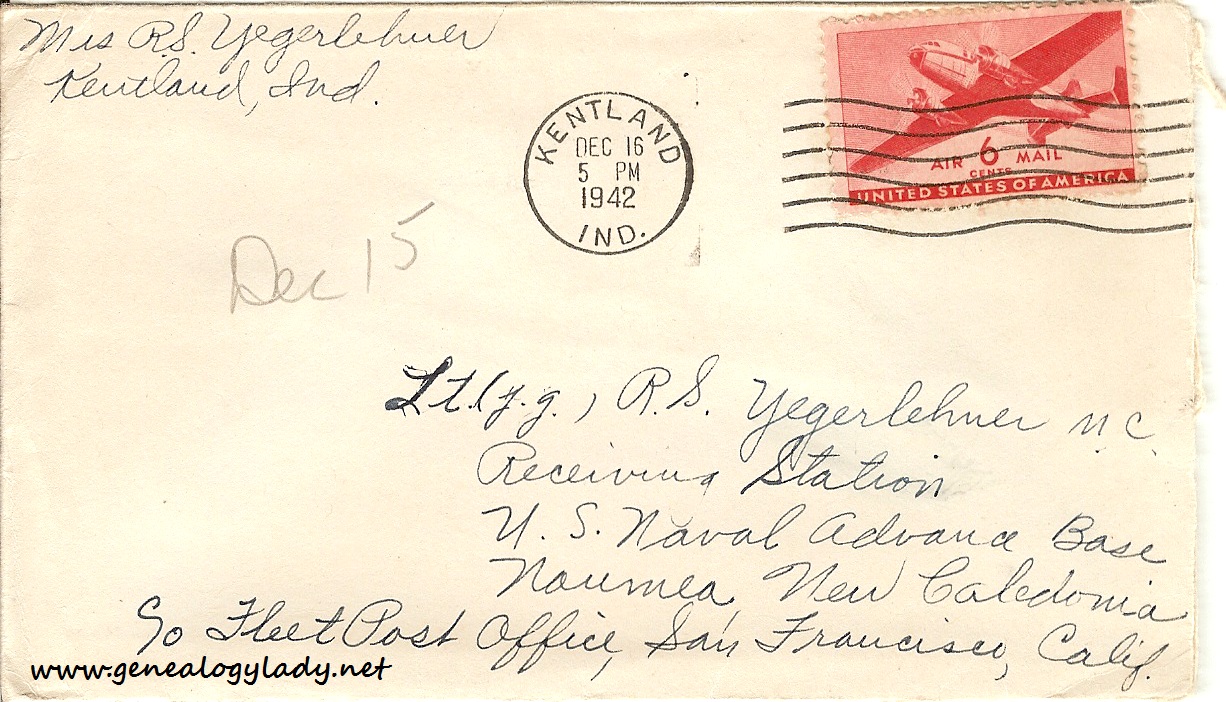 Mrs R.S. Yegerlehner
Kentland, Ind.
KENTLAND
DEC 16
5 PM
1942
IND.
AIR 6 MAIL
CENTS
UNITED STATES OF AMERICA
Dec 15
Lt.(j.g.) R.S. Yegerlehner MC
Receiving Station
U.S. Naval Advance Base
Noumea, New Caledonia
c/o Fleet Post Office, San Francisco, Calif.
www.genealogylady.net